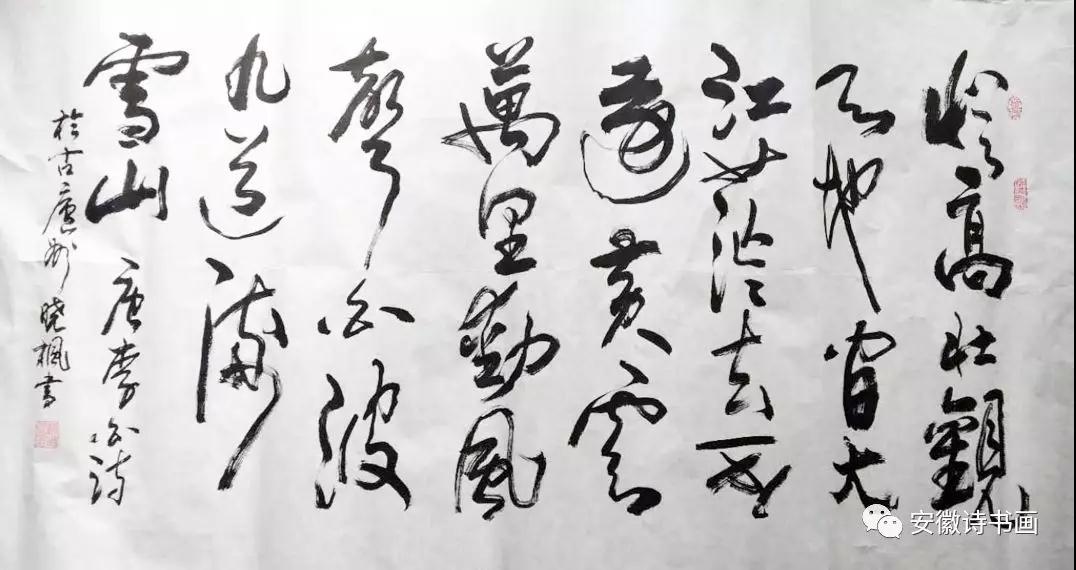 登高壮觀
天地間大
江茫茫去不
還黄雲
萬里動風
白波
九道流
雪山 唐李白詩
於古廬州 晓楓書
安徽诗书画